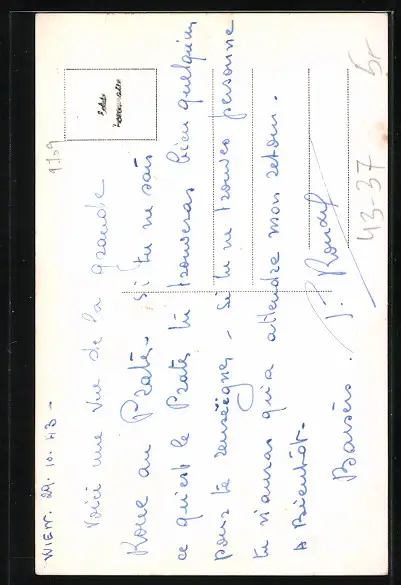 WIEN. 29.10.43 -
Voici une vue de la grande
Roue au Prater. Si tu ne sais
ce qu'est le Prater tu trouveras bien quelqu'un
pour te renseigner - Si tu ne trouves personne
tu n'auras qu'à attendre mon retour.
A Bientôt.
Baisers.
43-37